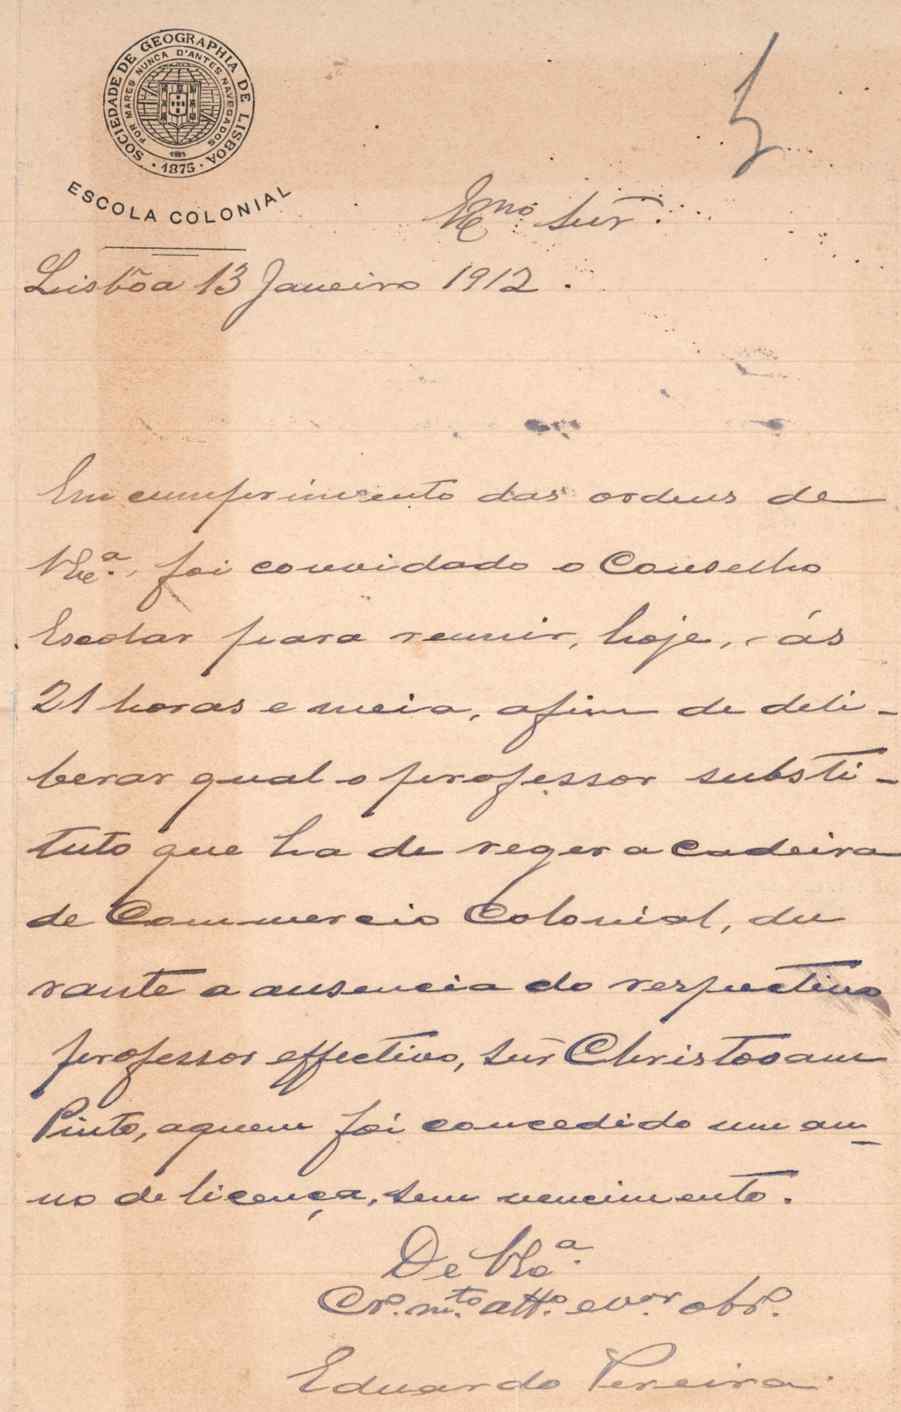 SOCIEDADE DE GEOGRAPHIA DE LISBOA
POR MARES NUNCA D'ANTES NAVEGADOS
· 1875 ·
ESCOLA COLONIAL
5
Exmo Snr.
Lisbôa 13 Janeiro 1912.
Em cumprimento das ordens de
V Exa., foi convidado o Conselho
Escolar para reunir, hoje, ás
21 horas e meia, afim de deli-
berar qual o professor substi-
tuto que ha de reger a cadeira
de Commercio Colonial, du
rante a ausencia do respectivo
professor effectivo, Snr Christovam
Pinto, a quem foi concedido um an-
no de licença, sem vencimento.
De V Exa.
Cro. mto. atto. e vor. obro.
Eduardo Pereira.